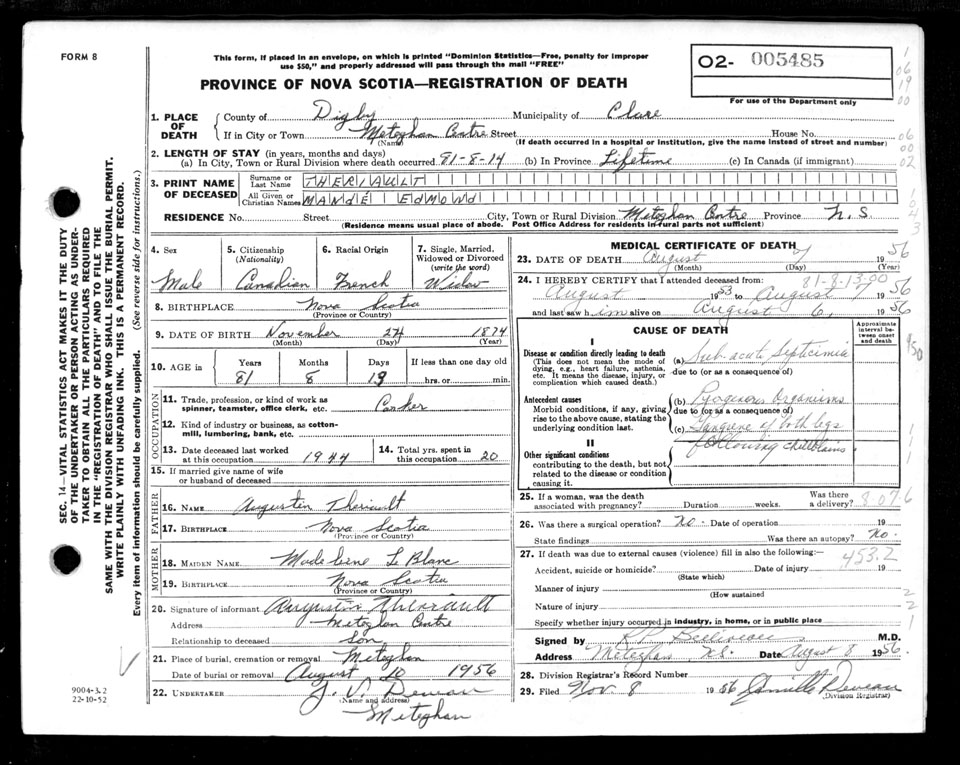 FORM 8
This form, if placed in an envelope, on which is printed "Dominion Statistics—Free, penalty for improper
use $50," and properly addressed will pass through the mail "FREE"
PROVINCE OF NOVA SCOTIA—REGISTRATION OF DEATH
O2- 005485
For use of the Department only
1. PLACE OF DEATH County of Digby Municipality of Clare
If in City or Town Meteghan Centre Street House No.
(Name) (If death occurred in a hospital or institution, give the name instead of street and number)
2. LENGTH OF STAY (in years, months and days)
(a) In City, Town or Rural Division where death occurred 81-8-14 (b) In Province Lifetime (c) In Canada (if immigrant)
3. PRINT NAME OF DECEASED Surname or Last Name THERIAULT
All Given or Christian Names MANDÉ EDMOND
RESIDENCE No. Street City, Town or Rural Division Meteghan Centre Province N.S.
(Residence means usual place of abode. Post Office Address for residents in rural parts not sufficient)
4. Sex 5. Citizenship (Nationality) 6. Racial Origin 7. Single, Married, Widowed or Divorced (write the word)
Male Canadian French Widow
8. BIRTHPLACE Nova Scotia
(Province or Country)
9. DATE OF BIRTH November 24 1874
(Month) (Day) (Year)
10. AGE in Years Months Days If less than one day old
81 8 13 hrs. or min.
OCCUPATION
11. Trade, profession, or kind of work as
spinner, teamster, office clerk, etc.
12. Kind of industry or business, as cotton-
mill, lumbering, bank, etc.
13. Date deceased last worked
at this occupation 1944
14. Total yrs. spent
in this occupation 20
15. If married give name of wife
or husband of deceased
FATHER
16. NAME Augustin Theriault
17. BIRTHPLACE Nova Scotia
(Province or Country)
MOTHER
18. MAIDEN NAME Madeleine LeBlanc
19. BIRTHPLACE Nova Scotia
(Province or Country)
20. Signature of informant Augustin Theriault
Address Meteghan Centre
Relationship to deceased Son
21. Place of burial, cremation or removal Meteghan
Date of burial or removal August 10 1956
22. UNDERTAKER J. V. Deveau
(Name and address)
Meteghan
MEDICAL CERTIFICATE OF DEATH
23. DATE OF DEATH August 7 1956
(Month) (Day) (Year)
81-8-13-00
24. I HEREBY CERTIFY that I attended deceased from:
August 1953 to August 7 1956
and last saw him alive on August 6, 1956
CAUSE OF DEATH
Approximate interval between onset and death
I
Disease or condition directly leading to death
(This does not mean the mode of
dying, e.g., heart failure, asthenia,
etc. It means the disease, injury, or
complication which caused death.)
(a) Sub acute Septicimia
due to (or as a consequence of)
Antecedent causes
Morbid conditions, if any, giving
rise to the above cause, stating the
underlying condition last.
(b) Pyogenous Organisms
due to (or as a consequence of)
(c) Gangrene of both legs
following chilblains
II
Other significant conditions
contributing to the death, but not
related to the disease or condition
causing it.
25. If a woman, was the death
associated with pregnancy? Duration weeks. Was there a delivery?
26. Was there a surgical operation? No. Date of operation 19
State findings Was there an autopsy? No.
27. If death was due to external causes (violence) fill in also the following:—
453.2
Accident, suicide or homicide? Date of injury 19
(State which)
Manner of injury
(How sustained
Nature of injury
Specify whether injury occurred in industry, in home, or in public place
Signed by R.P. Belliveau M.D.
Address Meteghan N.S. Date August 8 1956.
28. Division Registrar's Record Number
29. Filed Nov. 8 1956 Deveau
(Division Registrar)
SEC. 14—VITAL STATISTICS ACT MAKES IT THE DUTY
OF THE UNDERTAKER OR PERSON ACTING AS UNDER-
TAKER TO OBTAIN ALL THE PARTICULARS REQUIRED
IN THE "REGISTRATION OF DEATH" AND TO FILE THE
SAME WITH THE DIVISION REGISTRAR WHO SHALL ISSUE THE BURIAL PERMIT.
WRITE PLAINLY WITH UNFADING INK. THIS IS A PERMANENT RECORD.
Every item of information should be carefully supplied. (See reverse side for instructions.)
9004-3.2
22-10-52